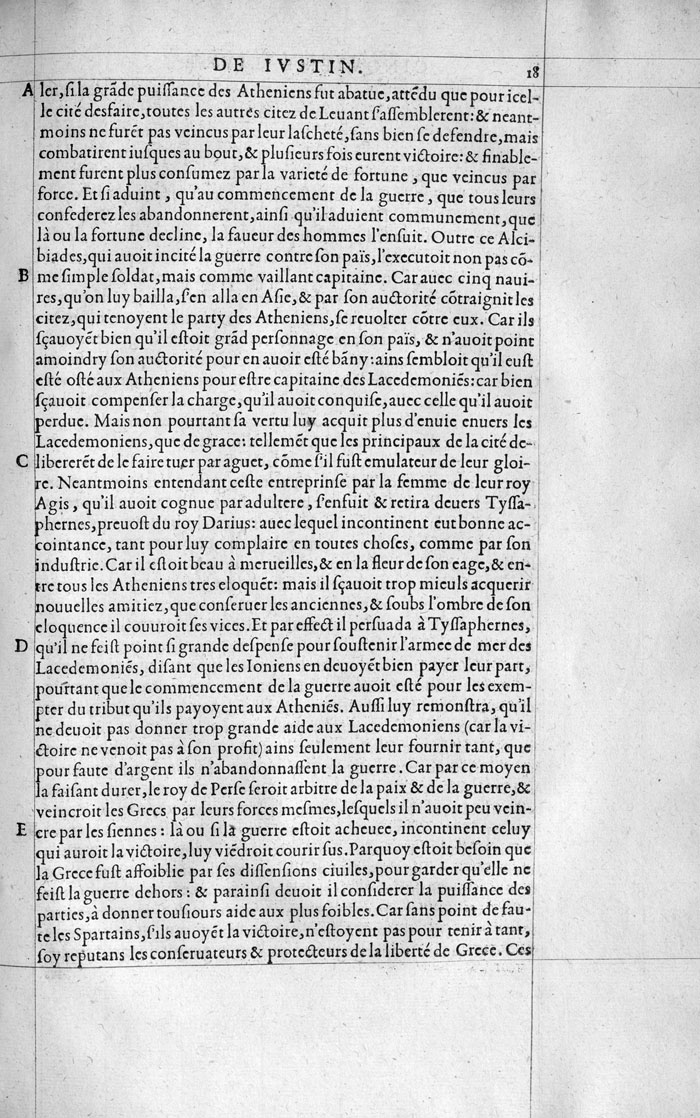 DE IVSTIN. 18
A ler, si la grãde puissance des Atheniens fut abatue, attẽdu que pour icel-
le cité desfaire, toutes les autres citez de Leuant s'assemblerent: & neant-
moins ne furẽt pas veincus par leur lascheté, sans bien se defendre, mais
combatirent iusques au bout, & plusieurs fois eurent victoire: & finable-
ment furent plus consumez par la varieté de fortune, que veincus par
force. Et si aduint, qu'au commencement de la guerre, que tous leurs
confederez les abandonnerent, ainsi qu'il aduient communement, que
là ou la fortune decline, la faueur des hommes l'ensuit. Outre ce Alci-
biades, qui auoit incité la guerre contre son païs, l'executoit non pas cõ-
B me simple soldat, mais comme vaillant capitaine. Car auec cinq naui-
res, qu'on luy bailla, s'en alla en Asie, & par son auctorité cõtraignit les
citez, qui tenoyent le party des Atheniens, se reuolter cõtre eux. Car ils
sçauoyẽt bien qu'il estoit grãd personnage en son païs, & n'auoit point
amoindry son auctorité pour en auoir esté bãny: ains sembloit qu'il eust
esté osté aux Atheniens pour estre capitaine des Lacedemoniẽs: car bien
sçauoit compenser la charge, qu'il auoit conquise, auec celle qu'il auoit
perdue. Mais non pourtant sa vertu luy acquit plus d'enuie enuers les
Lacedemoniens, que de grace: tellemẽt que les principaux de la cité de-
C libererẽt de le faire tuer par aguet, cõme s'il fust emulateur de leur gloi-
re. Neantmoins entendant ceste entreprinse par la femme de leur roy
Agis, qu'il auoit cognue par adultere, s'enfuit & retira deuers Tyssa-
phernes, preuost du roy Darius: auec lequel incontinent eut bonne ac-
cointance, tant pour luy complaire en toutes choses, comme par son
industrie. Car il estoit beau à merueilles, & en la fleur de son eage, & en-
tre tous les Atheniens tres eloquẽt: mais il sçauoit trop mieuls acquerir
nouuelles amitiez, que conseruer les anciennes, & soubs l'ombre de son
eloquence il couuroit ses vices. Et par effect il persuada à Tyssaphernes,
D qu'il ne feist point si grande despense pour soustenir l'armee de mer des
Lacedemoniẽs, disant que les Ioniens en deuoyẽt bien payer leur part,
pourtant que le commencement de la guerre auoit esté pour les exem-
pter du tribut qu'ils payoyent aux Atheniẽs. Aussi luy remonstra, qu'il
ne deuoit pas donner trop grande aide aux Lacedemoniens (car la vi-
ctoire ne venoit pas à son profit) ains seulement leur fournir tant, que
pour faute d'argent ils n'abandonnassent la guerre. Car par ce moyen
la faisant durer, le roy de Perse seroit arbitre de la paix & de la guerre, &
veincroit les Grecs par leurs forces mesmes, lesquels il n'auoit peu vein-
E cre par les siennes: là ou si la guerre estoit acheuee, incontinent celuy
qui auroit la victoire, luy viẽdroit courir sus. Parquoy estoit besoin que
la Grece fust affoiblie par ses dissensions ciuiles, pour garder qu'elle ne
feist la guerre dehors: & parainsi deuoit il considerer la puissance des
parties, à donner tousiours aide aux plus foibles. Car sans point de fau-
te les Spartains, s'ils auoyẽt la victoire, n'estoyent pas pour tenir à tant,
soy reputans les conseruateurs & protecteurs de la liberté de Grece. Ces